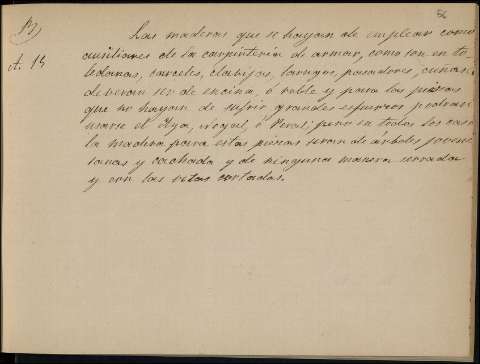 Las maderas que se hayan de emplear como
ausiliares de la carpinteria de armar, como son en to-
ledanas, carceles, clabijas, tarugos, pasadores, cunas
deveran ser de encina, ó roble y para las piezas
que no hayan de sufrir grandes esfuerzos podran
usarse el Aya, Nogal, ó Peral; pero en todos los casos
A. 15 la madera para estas piezas seran de árboles
sanas y cachada y de ninguna manera serrada
y con las vetas cortadas.